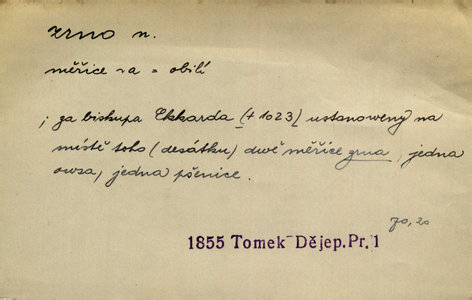 zrno n.
měřice -a = obilí
; za biskupa Ekkarda [+ 1023[ ustanoweny na
místě toho (desátku) dwě měřice zrna, jedna
owsa, jedna pšenice.
70, 20
1855 Tomek Dějep. Pr. 1